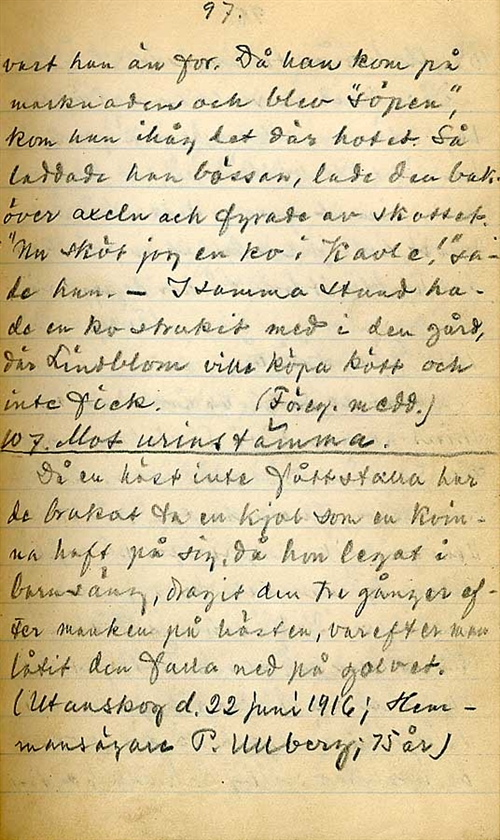 97.
vart han än for. Då han kom på
marknaden och blev "söpen",
kom han ihåg det där hotet. Så
laddade han bössan, lade den bak-
över axeln och fyrade av skottet.
"Nu sköt jag en ko i Kavle!" sa-
de han. – I samma stund ha-
de en ko strukit med i den gård,
där Lindblom ville köpa kött och
inte fick. (Föreg. medd.)
107. Mot urinstämma.
Då en häst inte fått stalla har
de brukat ta en kjol som en kvin-
na haft på sig, då hon legat i
barnsäng, dragit den tre gånger ef-
ter manken på hästen, varefter man
låtit den falla ned på golvet.
(Utanskog d. 22 juni 1916; Hem-
mansägare P. Ullberg; 75 år)